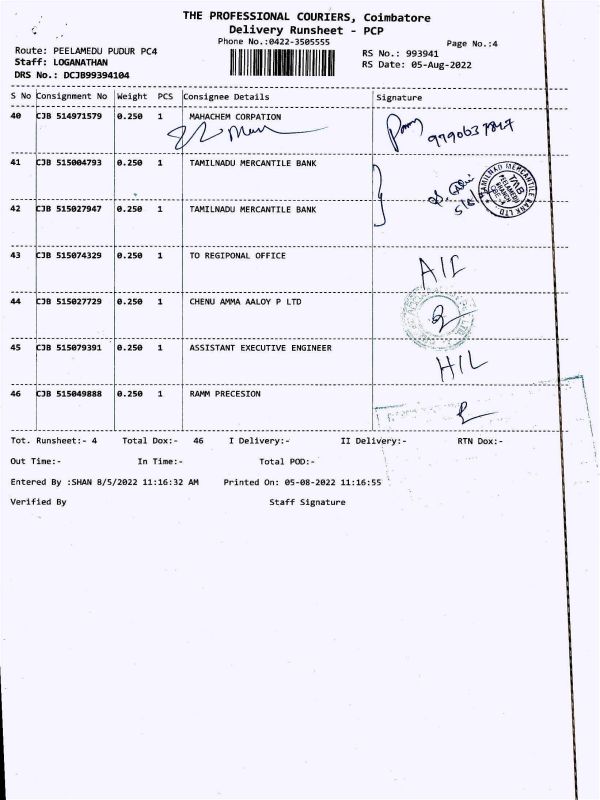 THE PROFESSIONAL COURIERS, Coimbatore
Delivery Runsheet - PCP
Phone No.:0422-3505555
Page No.:4
Route: PEELAMEDU PUDUR PC4
RS No.: 993941
Staff: LOGANATHAN
RS Date: 05-Aug-2022
DRS No.: DCJB99394104
S No Consignment No Weight PCS Consignee Details Signature
40 CJB 514971579 0.250 1 MAHACHEM CORPATION
41 CJB 515004793 0.250 1 TAMILNADU MERCANTILE BANK
TAMILNAD MERCANTILE BANK LTD.
TMB
PEELAMEDU
BRANCH
CBE-4
42 CJB 515027947 0.250 1 TAMILNADU MERCANTILE BANK
43 CJB 515074329 0.250 1 TO REGIPONAL OFFICE
44 CJB 515027729 0.250 1 CHENU AMMA AALOY P LTD
45 CJB 515079391 0.250 1 ASSISTANT EXECUTIVE ENGINEER
46 CJB 515049888 0.250 1 RAMM PRECESION
Tot. Runsheet:- 4 Total Dox:- 46 I Delivery:- II Delivery:- RTN Dox:-
Out Time:- In Time:- Total POD:-
Entered By :SHAN 8/5/2022 11:16:32 AM Printed On: 05-08-2022 11:16:55
Verified By Staff Signature